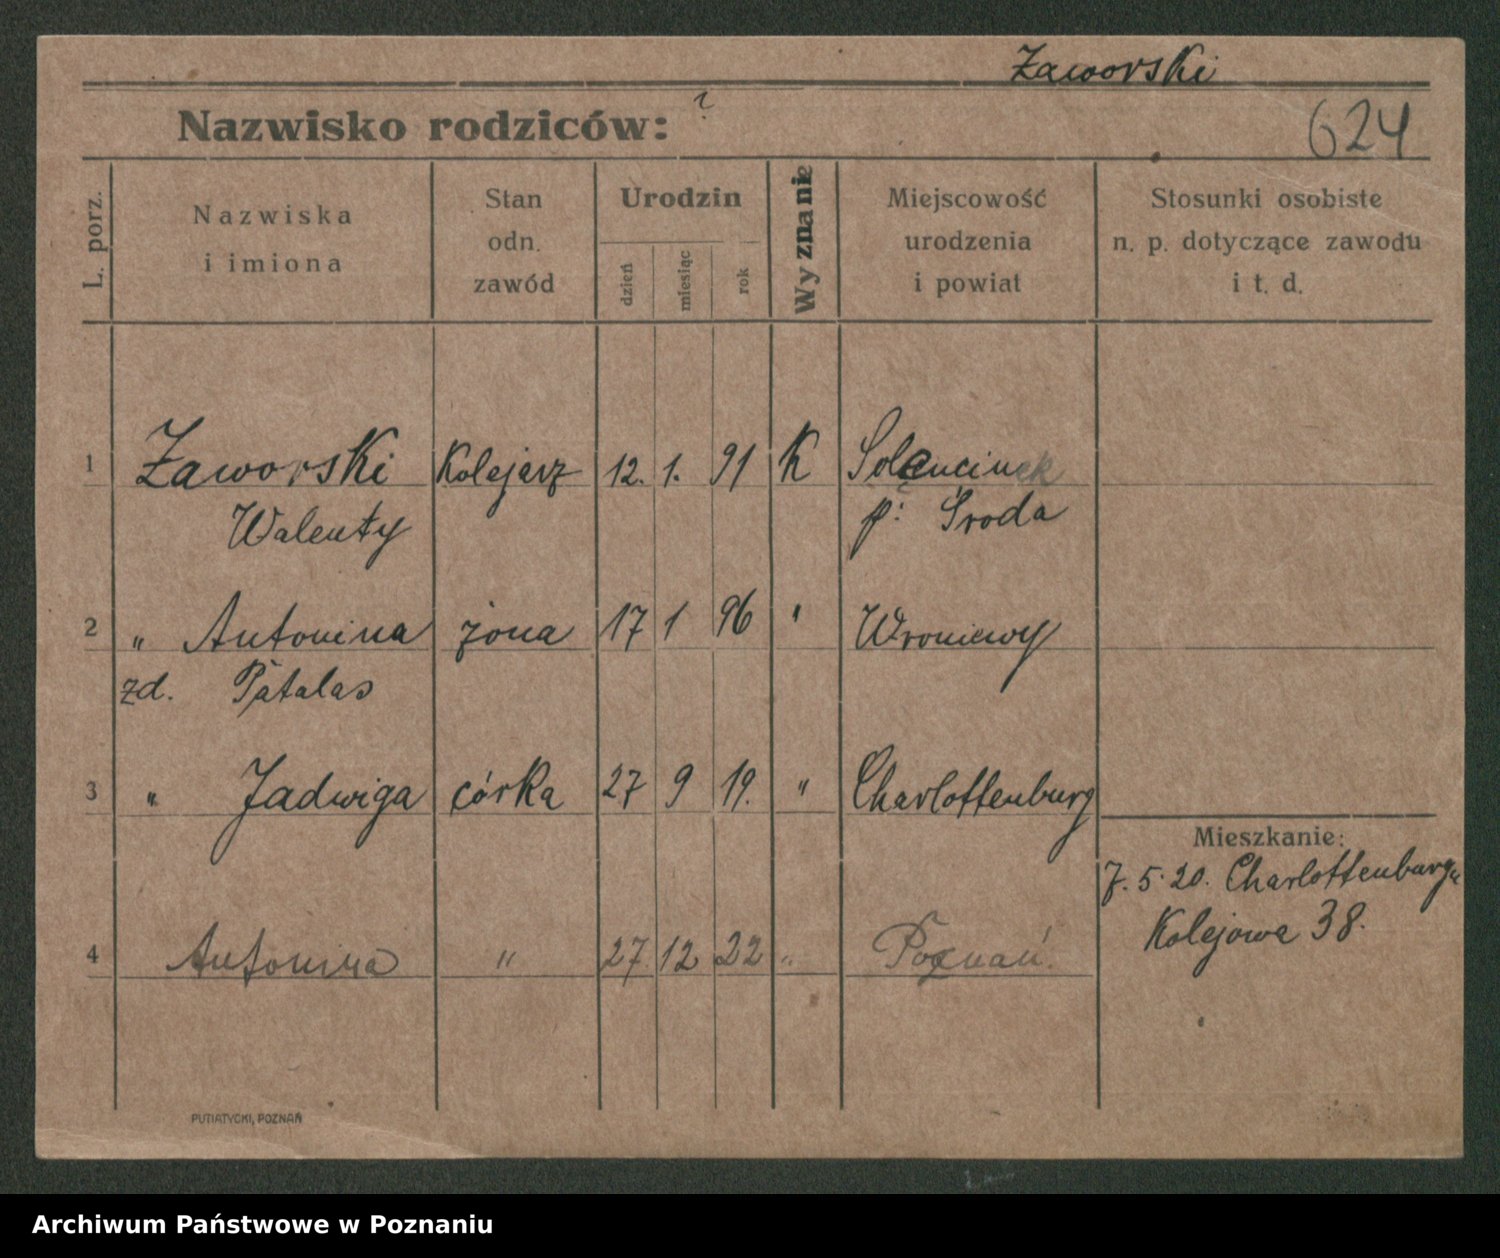 Zaworski
Nazwisko rodziców: ?
624
L. porz.
Nazwiska
i imiona
Stan
odn.
zawód
Urodzin
dzień
miesiąc
rok
Wyznanie
Miejscowość
urodzenia
i powiat
Stosunki osobiste
n. p. dotyczące zawodu
i t. d.
1 Zaworski Kolejarz 12. 1. 91 K
Walenty p: Środa
2 " Antonina żona 17 1 96 " Wroniawy
zd. Patalas
3 " Jadwiga córka 27 9 19. " Charlottenburg
Mieszkanie:
7. 5. 20. Charlottenburga
Kolejowa 38.
4 Antonina " 27. 12 22 " Poznań.
PUTIATYCKI, POZNAŃ
Archiwum Państwowe w Poznaniu